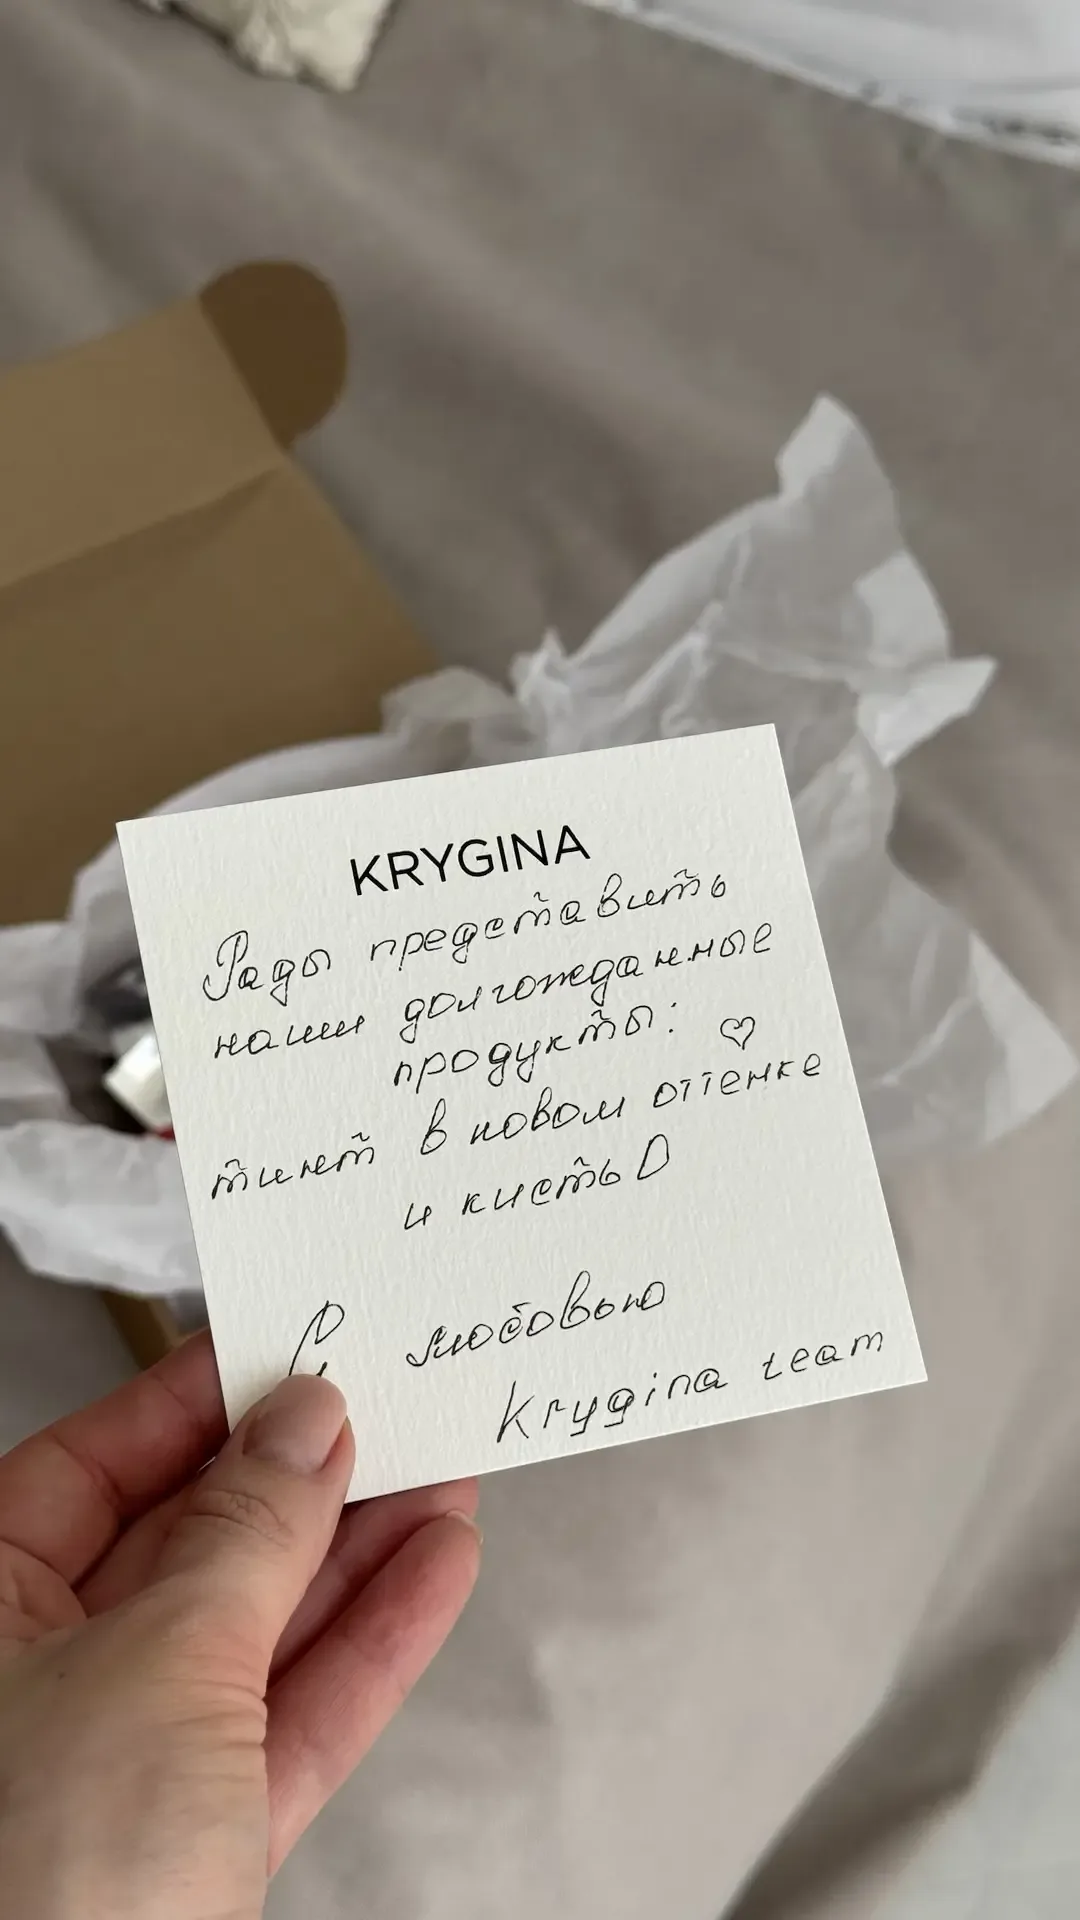 KRYGINA
Рады представить
наши долгожданные
продукты: ♡
тинт в новом оттенке
и кисть D
С любовью
Krygina team